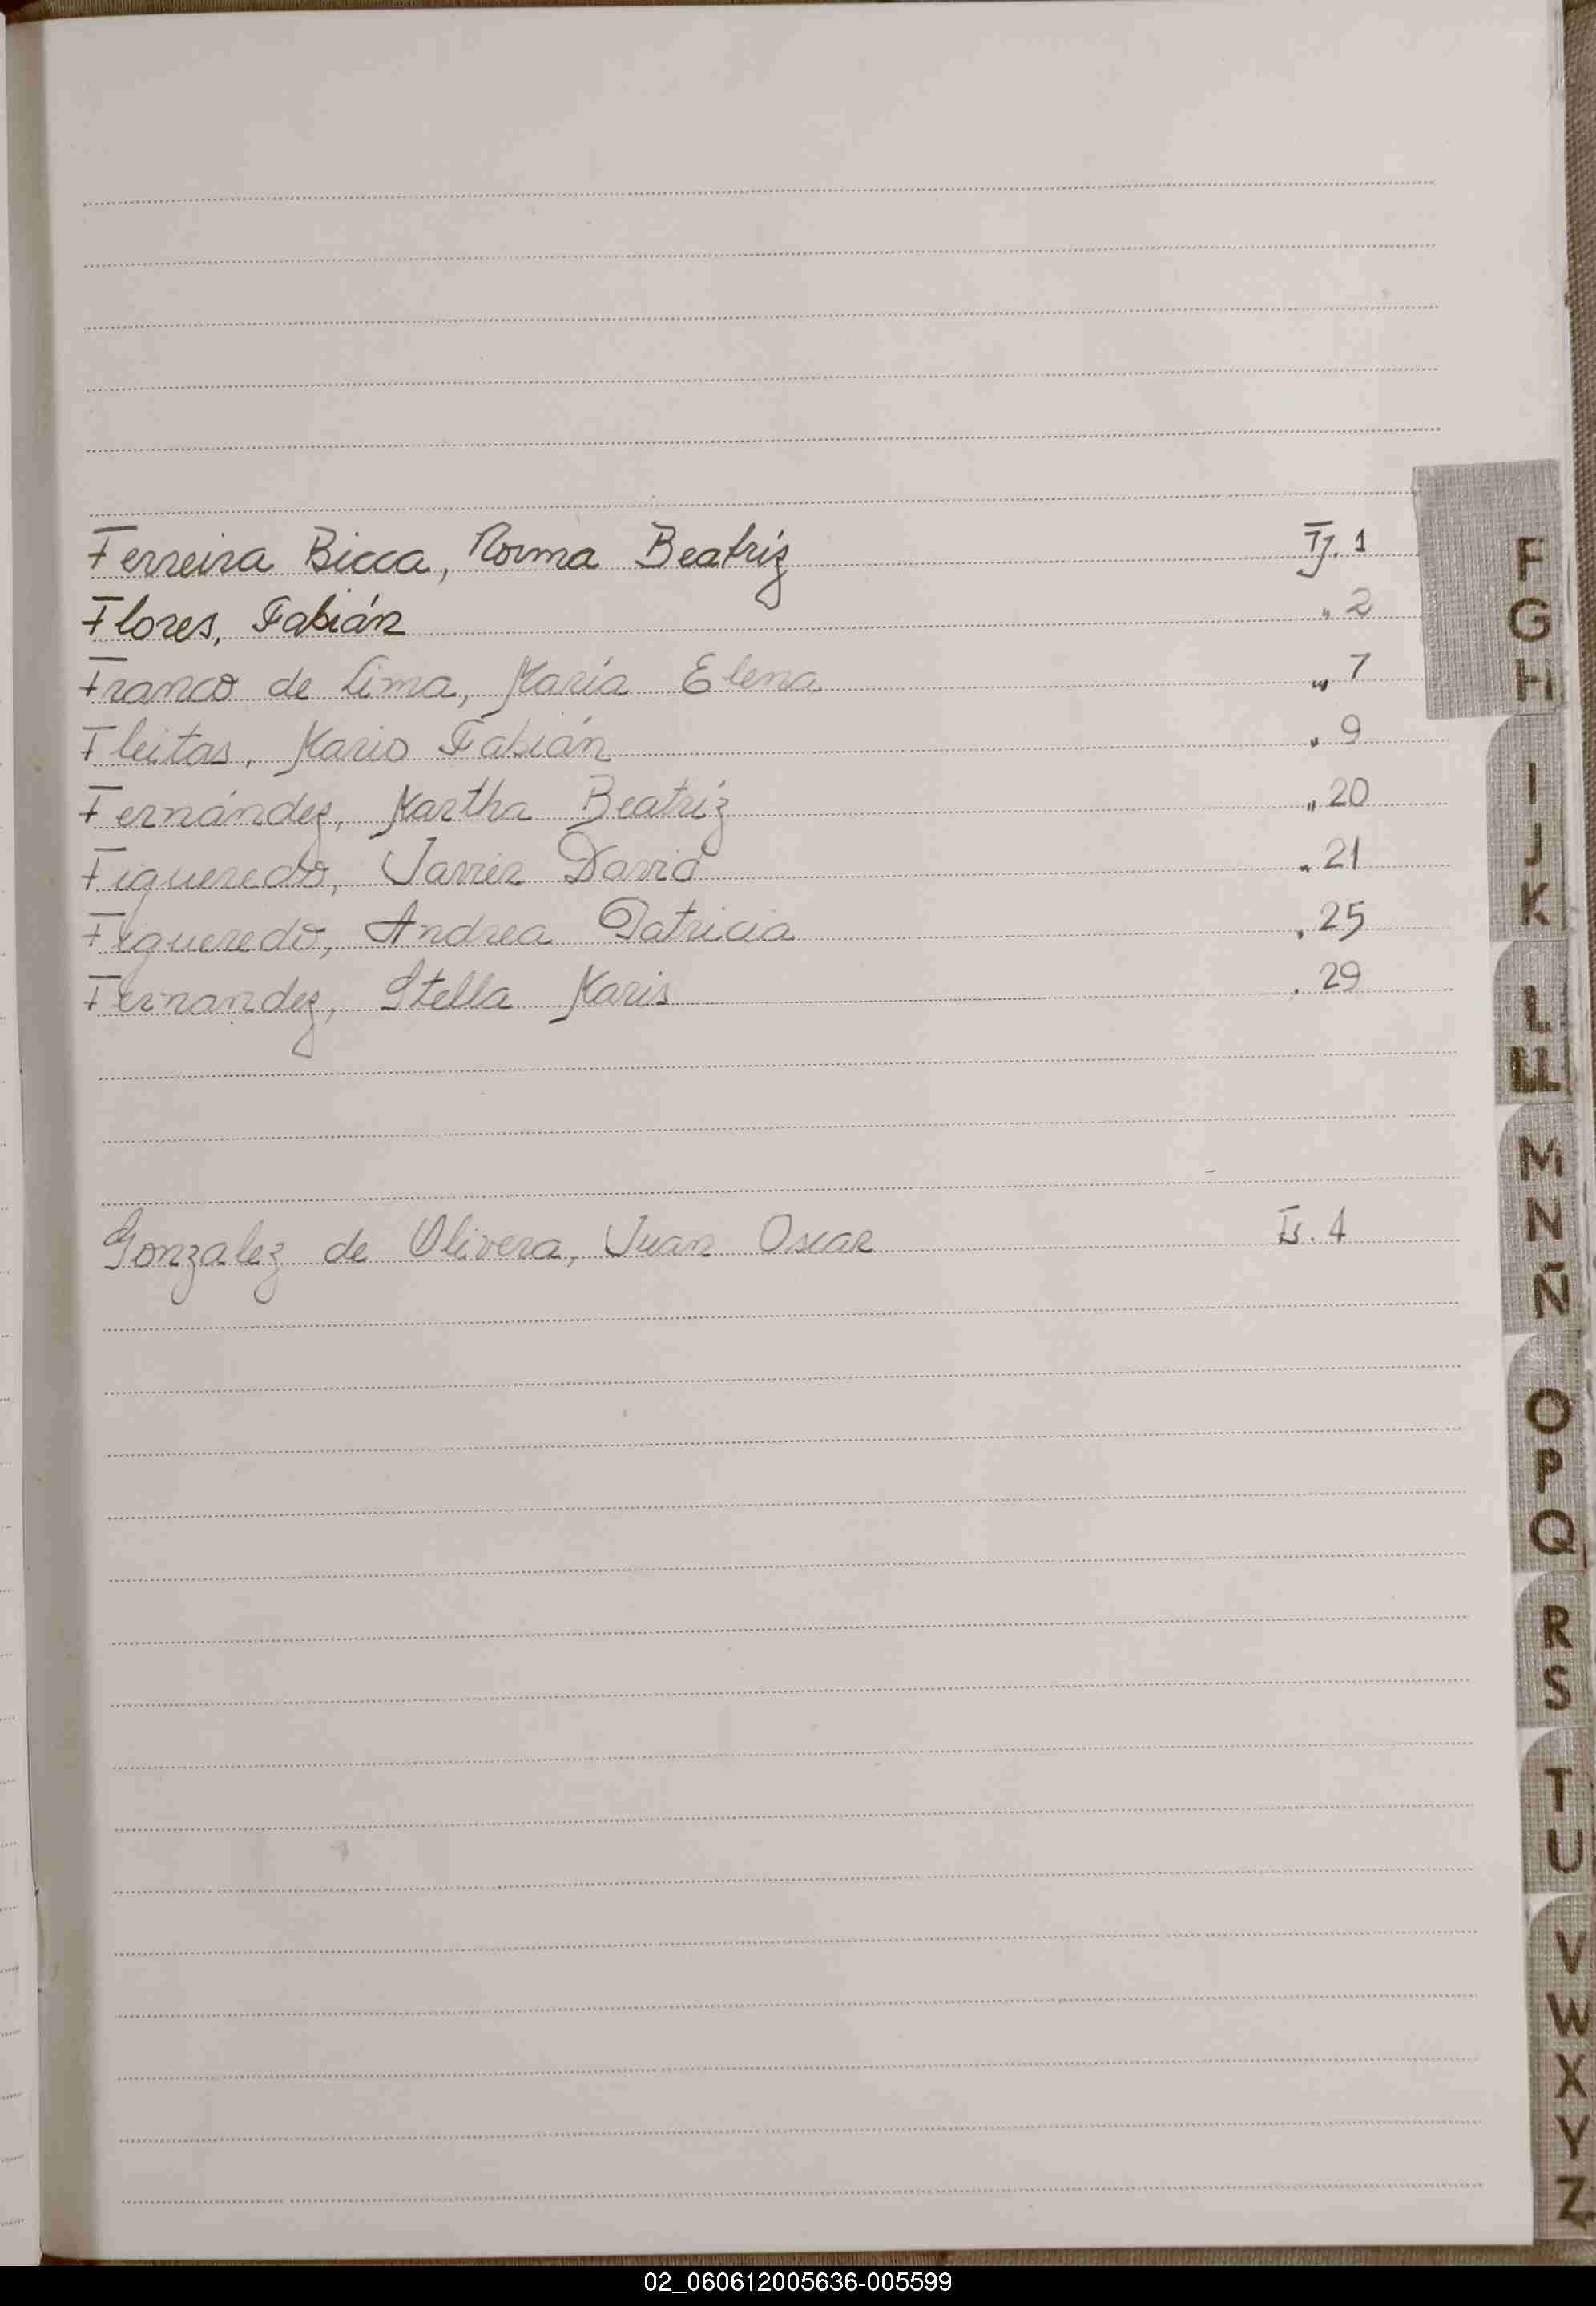 Ferreira Bicca, Norma Beatriz Fj. 1
Flores, Fabián " 2
Franco de Lima, María Elena " 7
Fleitas, Mario Fabián " 9
Fernández, Martha Beatriz " 20
Figueredo, Javier David " 21
Figueredo, Andrea Patricia " 25
Fernandez, Stella Maris " 29
Gonzalez de Olivera, Juan Oscar Fs. 4
F
G
H
I
J
K
L
LL
M
N
Ñ
O
P
Q
R
S
T
U
V
W
X
Y
Z
02_060612005636-005599